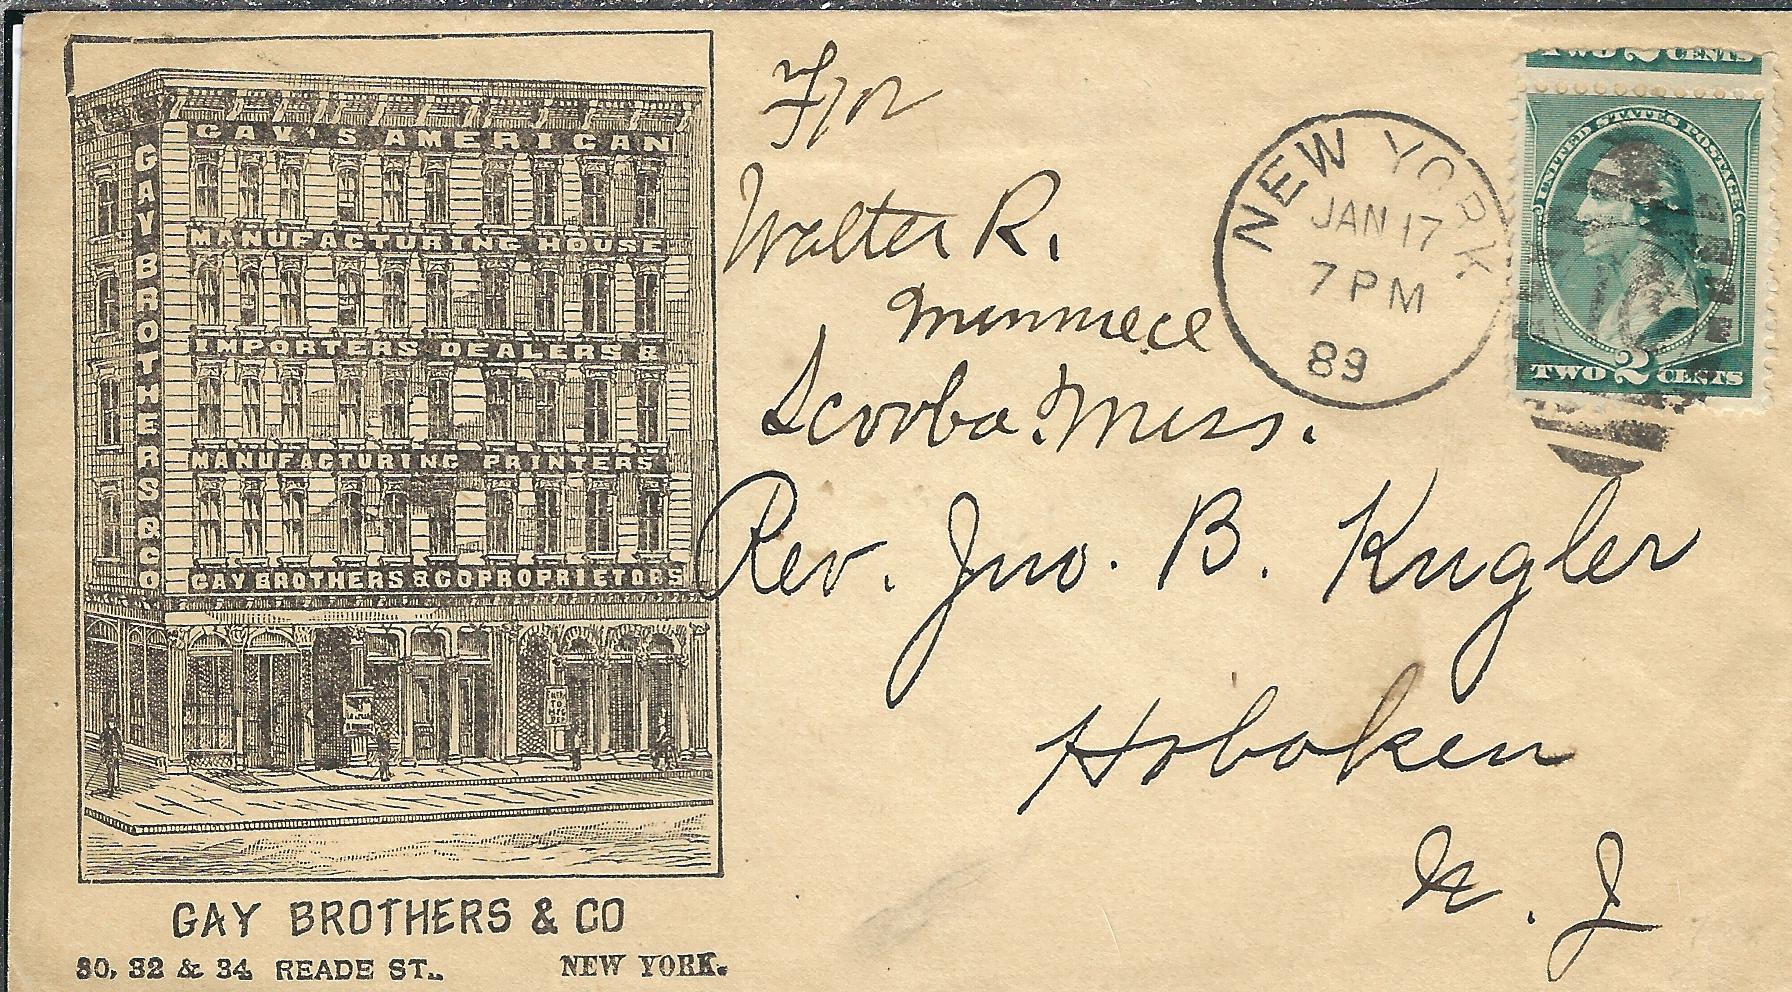 GAY'S AMERICAN
MANUFACTURING HOUSE
IMPORTERS DEALERS &
MANUFACTURING PRINTERS
GAY BROTHERS & CO PROPRIETORS
GAY BROTHERS & CO
GAY BROTHERS & CO
30, 32 & 34 READE ST.. NEW YORK.
For
Walter R.
Scooba. Miss.
Rev. Jno. B. Kugler
Hoboken
N. J
NEW YORK
JAN 17
7 PM
89
TWO 2 CENTS
UNITED STATES POSTAGE
TWO 2 CENTS